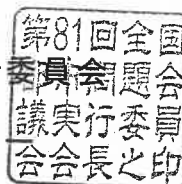 第81回全国
委員会
問題会
議実行委員
会会長之印